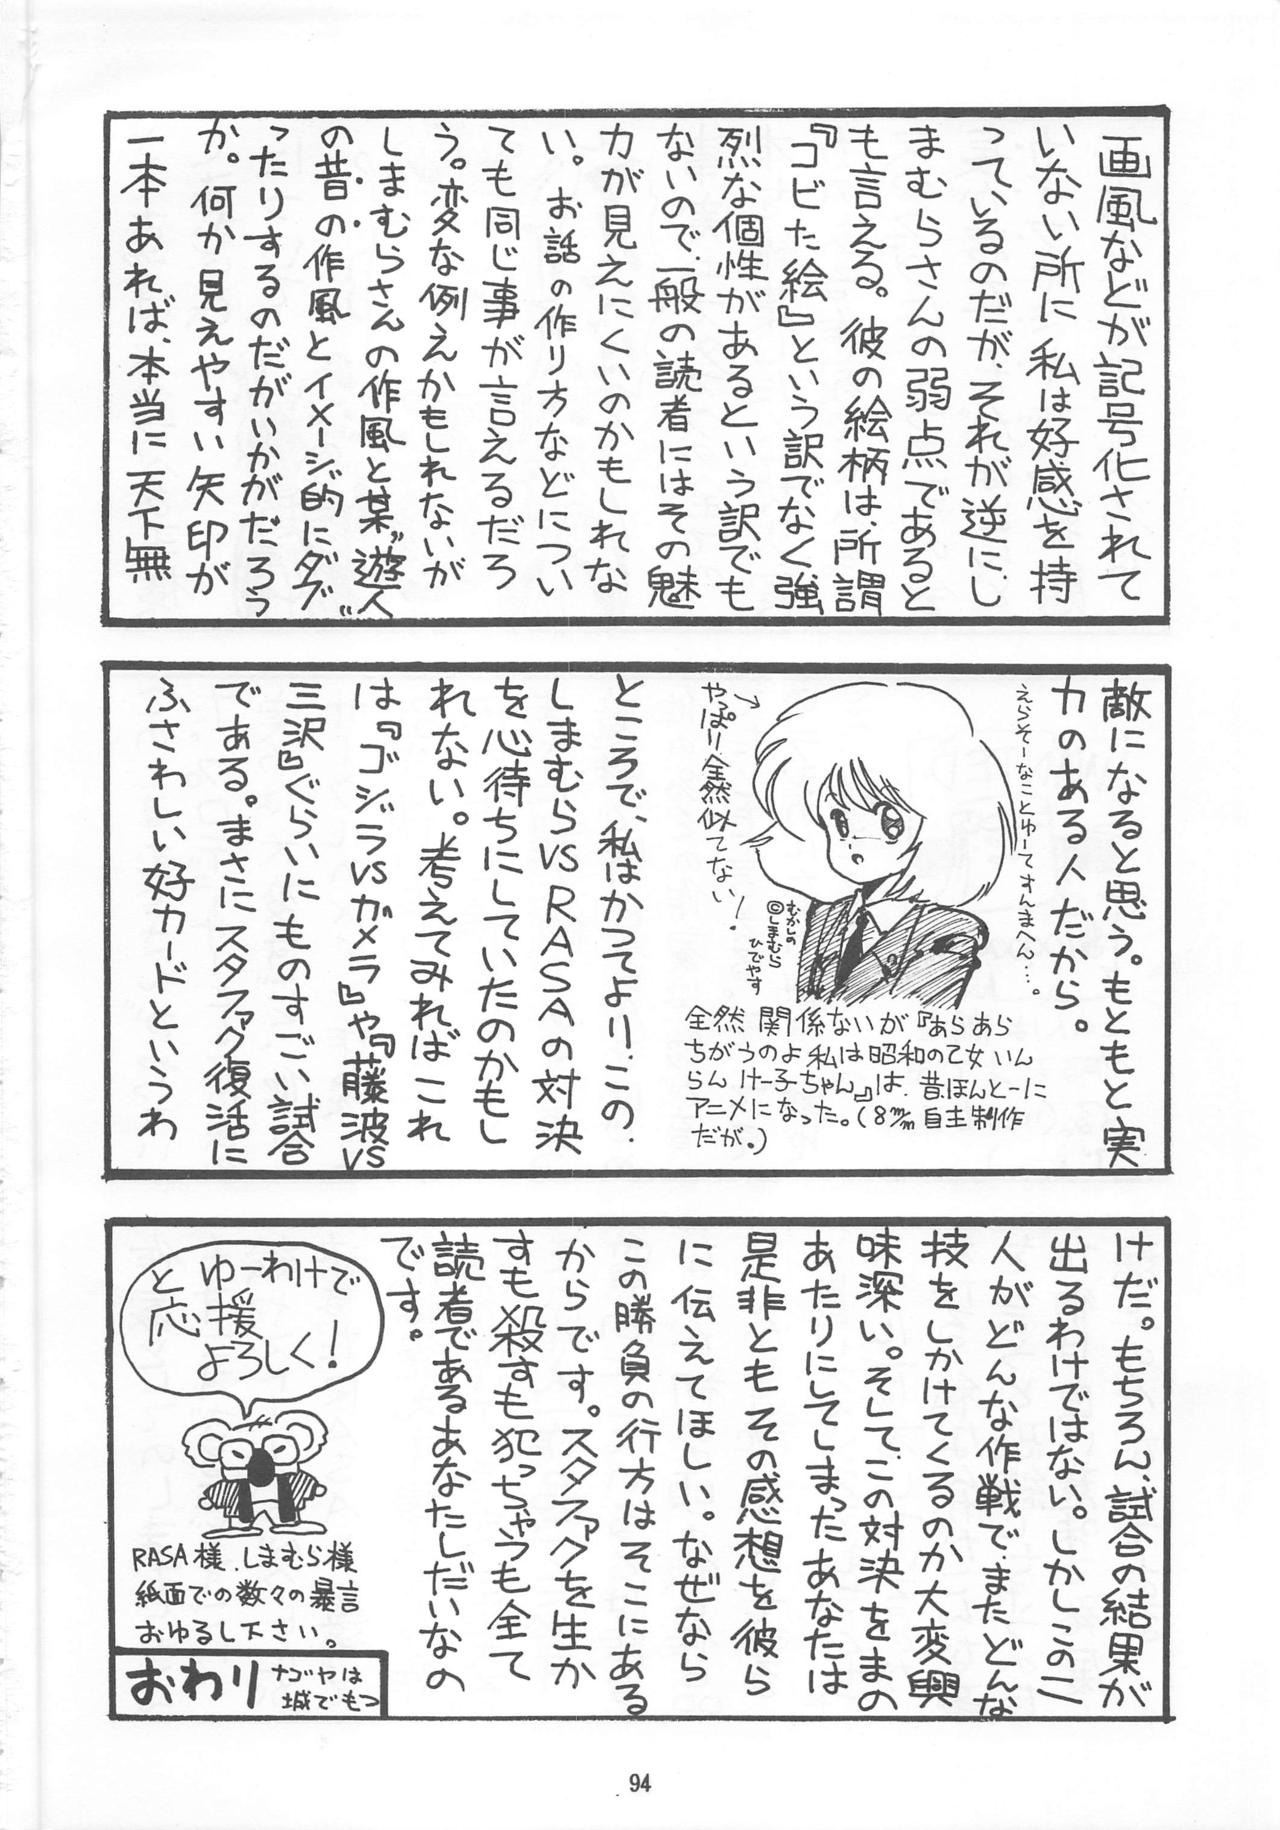 画風などが記号化されて
いない所に私は好感を持
っているのだが、それが逆にし
まむらさんの弱点であると
も言える。彼の絵柄は、所謂
『コビた絵』という訳でなく強
烈な個性があるという訳でも
ないので、一般の読者にはその魅
力が見えにくいのかもしれな
い。お話の作り方などについ
ても同じ事が言えるだろ
う。変な例えかもしれないが
しまむらさんの作風と某〝遊人
の昔の作風とイメージ的にダブ〟
ったりするのだがいかがだろう
か。何か見えやすい矢印が
一本あれば、本当に天下無
敵になると思う。もともと実
力のある人だから。
えらそーなことゆーてすんまへん…。
やっぱり全然似てない！
むかしの
©しまむら
ひでやす
全然関係ないが『あらあら
ちがうのよ私は昭和の乙女いん
らんけー子ちゃん』は、昔ほんとーに
アニメになった。(8m/m自主制作
だが。)
ところで、私はかつてより、この
しまむらVSRASAの対決
を心待ちにしていたのかもし
れない。考えてみればこれ
は『ゴジラVSガメラ』や『藤波VS
三沢』ぐらいにものすごい試合
である。まさにスタファク復活に
ふさわしい好カードというわ
けだ。もちろん、試合の結果が
出るわけではない。しかしこの二
人がどんな作戦で、またどんな
技をしかけてくるのか大変興
味深い。そして、この対決をまの
あたりにしてしまったあなたは
是非ともその感想を彼ら
に伝えてほしい。なぜなら
この勝負の行方はそこにある
からです。スタファクを生か
すも殺すも犯っちゃうも全て
読者であるあなたしだいなの
です。
ゆーわけで
と応援
よろしく！
RASA様、しまむら様
紙面での数々の暴言
おゆるし下さい。
おわり
ナゴヤは
城でもつ
94